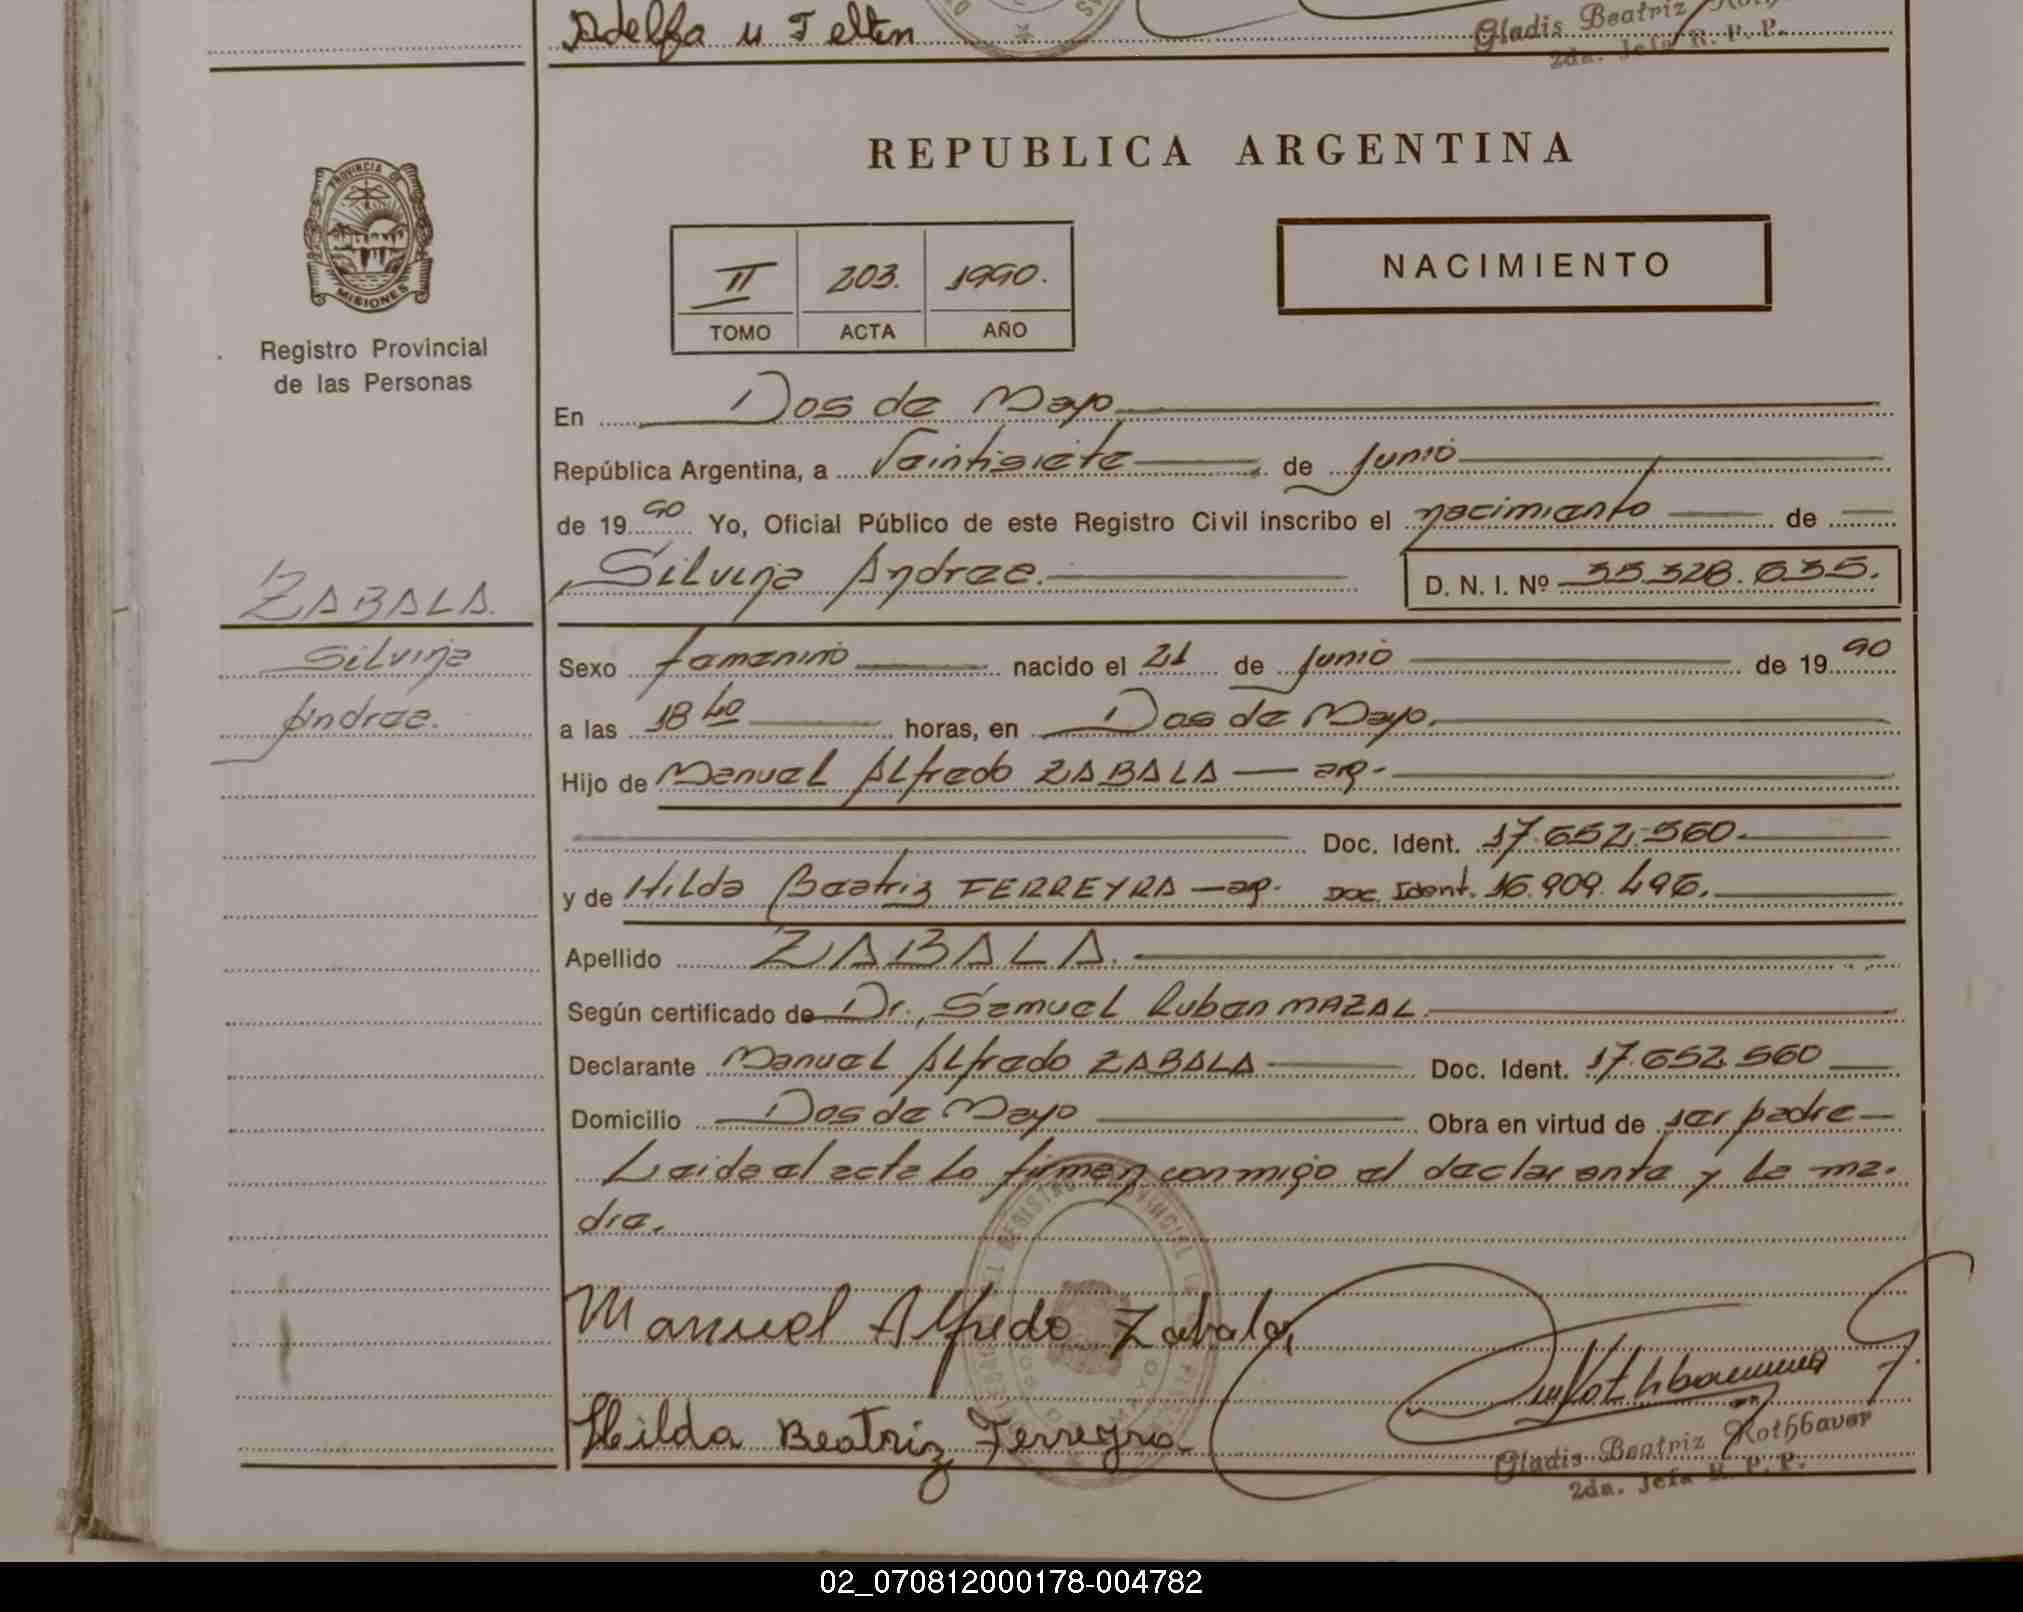 Adelfa M Felten
Gladis Beatriz
2da. Jefa R. P. P.
PROVINCIA DE
MISIONES
Registro Provincial
de las Personas
REPUBLICA ARGENTINA
II 203. 1990.
TOMO ACTA AÑO
NACIMIENTO
En Dos de Mayo
República Argentina, a Veintisiete de Junio
de 1990 Yo, Oficial Público de este Registro Civil inscribo el nacimiento de
Silvina Andrea. D. N. I. Nº 35.328.635.
ZABALA.
Silvina
Andrea.
Sexo femenino nacido el 21 de Junio de 1990
a las 18 40 horas, en Dos de Mayo.
Hijo de Manuel Alfredo ZABALA — arg.
Doc. Ident. 17.652.560
y de Hilda Beatriz FERREYRA — arg. Doc. Ident. 16.909.496.
Apellido ZABALA.
Según certificado de Dr. Samuel Ruben MAZAL.
Declarante Manuel Alfredo ZABALA Doc. Ident. 17.652.560
Domicilio Dos de Mayo Obra en virtud de ser padre
Leida el acta la firman conmigo el declarante y la ma-
dre.
Manuel Alfredo Zabala
Hilda Beatriz Ferreyra
Gladis Beatriz Rothbaver
2da. Jefa R. P. P.
02_070812000178-004782